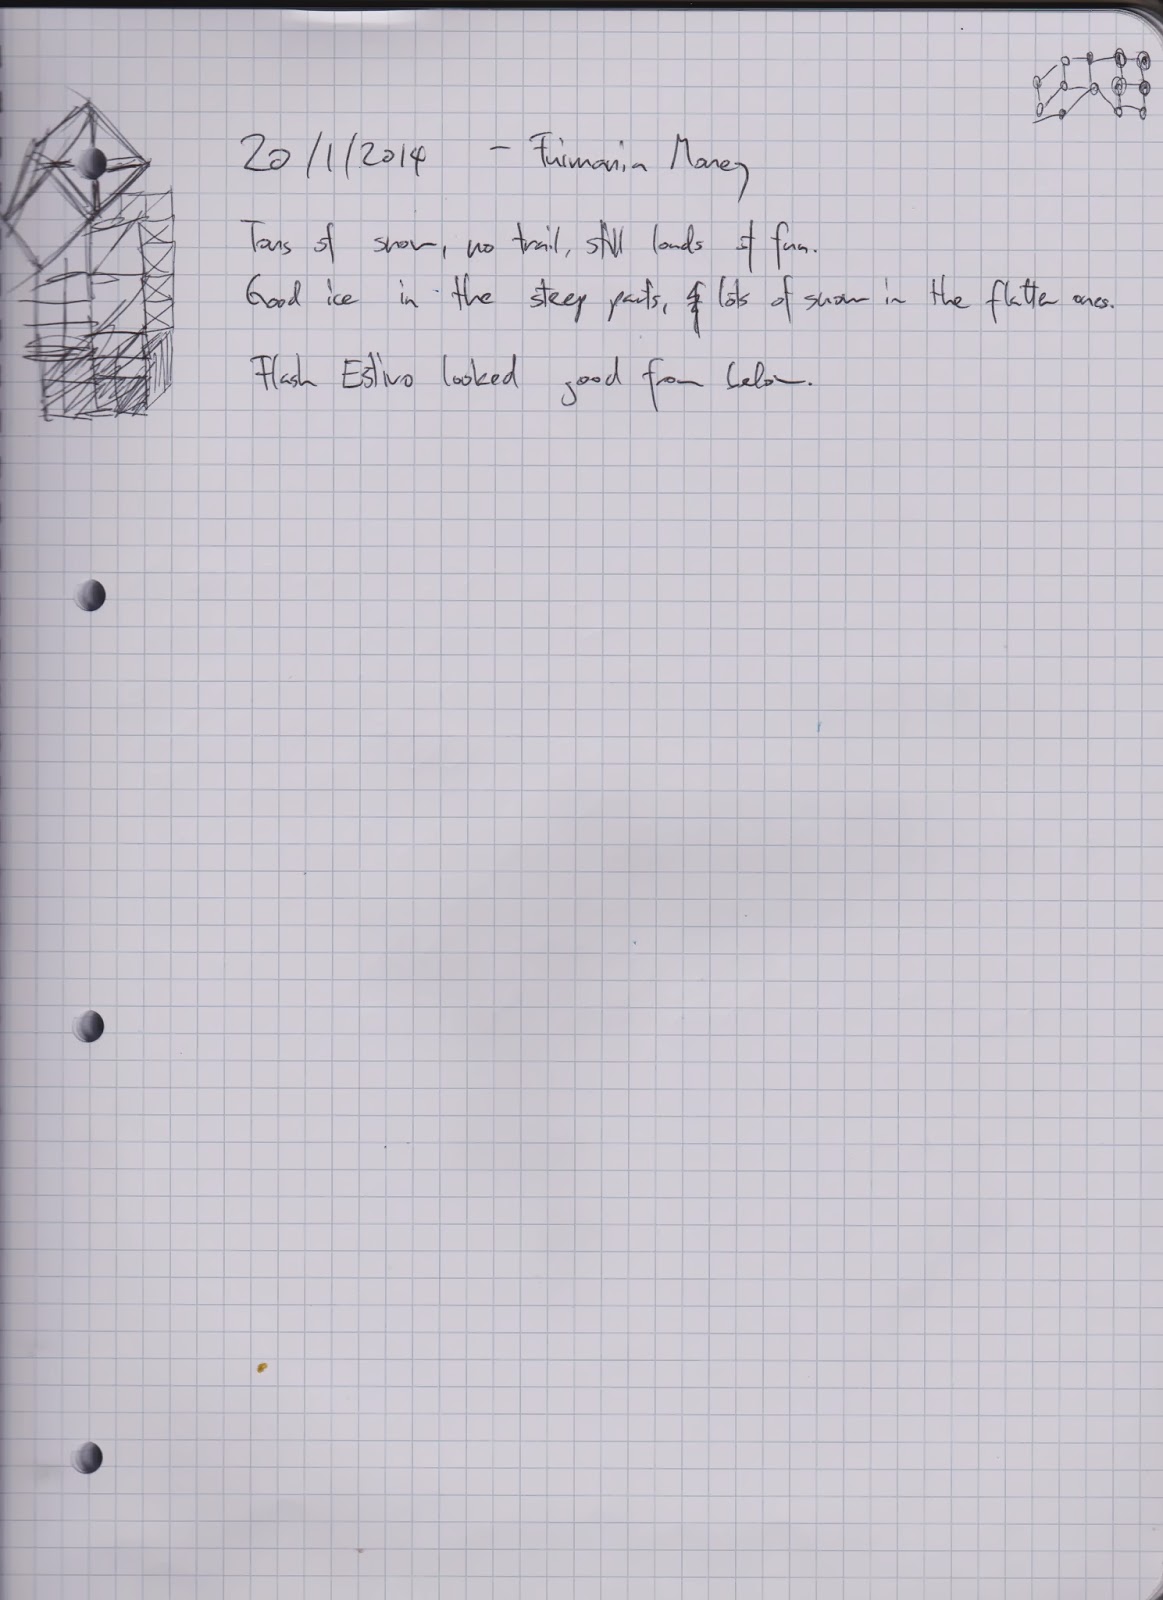 20/1/2014 - Fuimania Money
Tons of snow, no trail, still loads of fun.
Good ice in the steep parts, & lots of snow in the flatter ones.
Flash Estivo looked good from below.